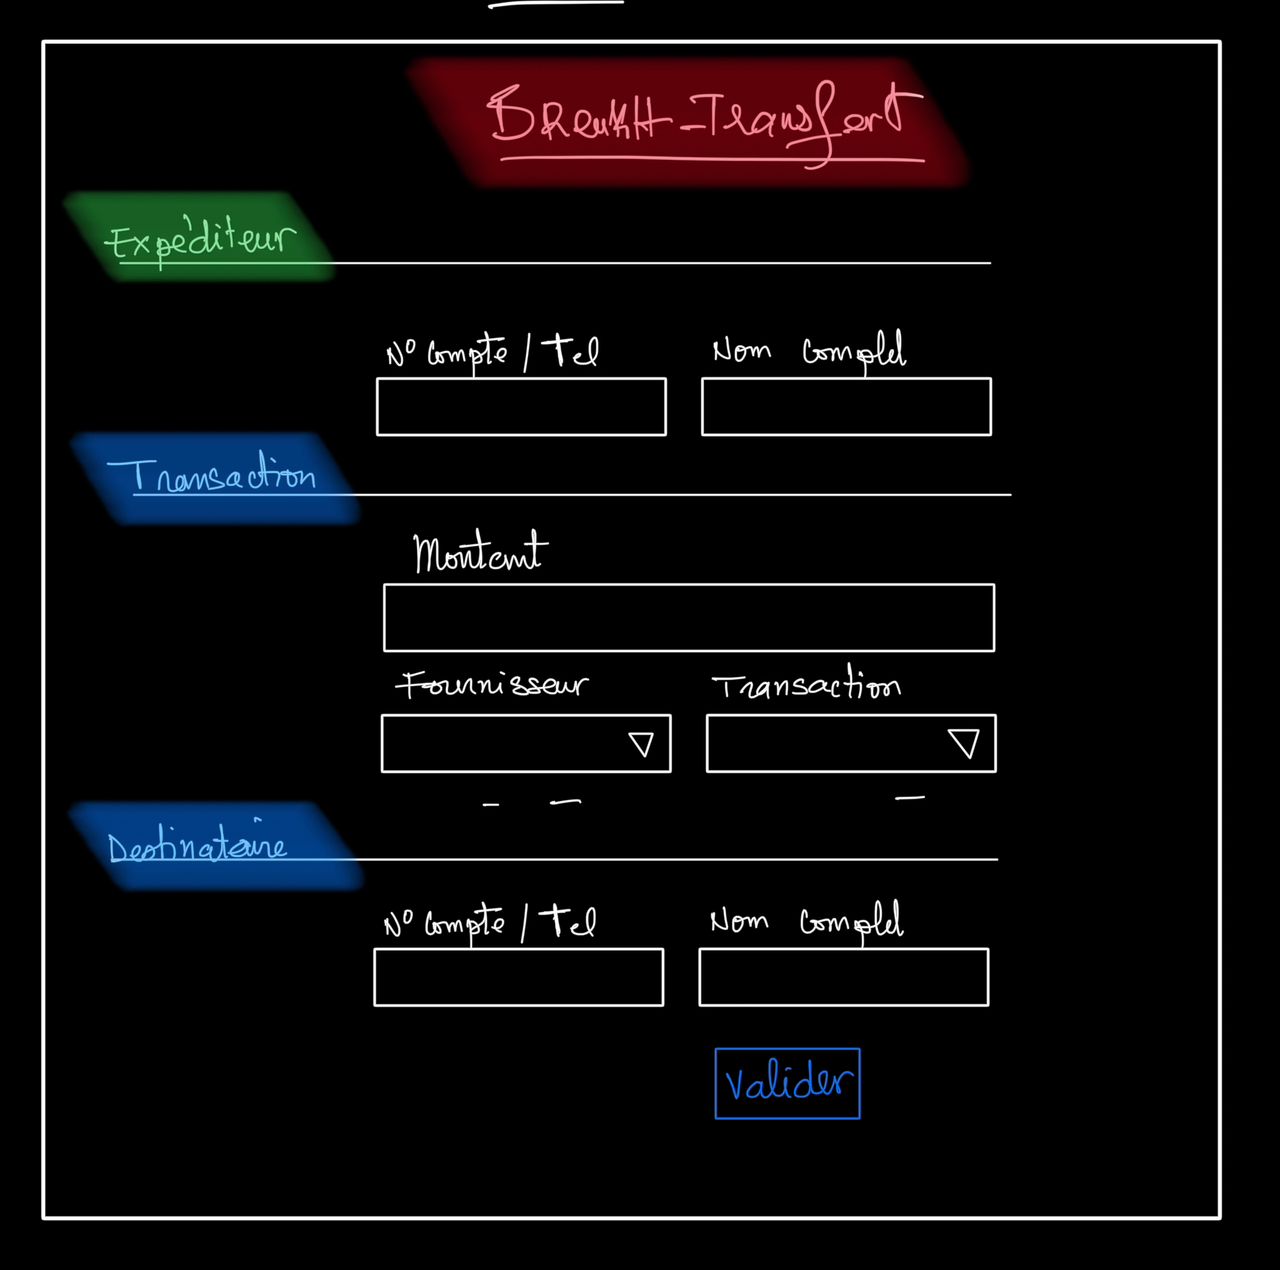 BReukH-Transfert
Expéditeur
N° compte / Tel Nom complet
Transaction
Montant
Fournisseur Transaction
Destinataire
N° compte / Tel Nom complet
Valider